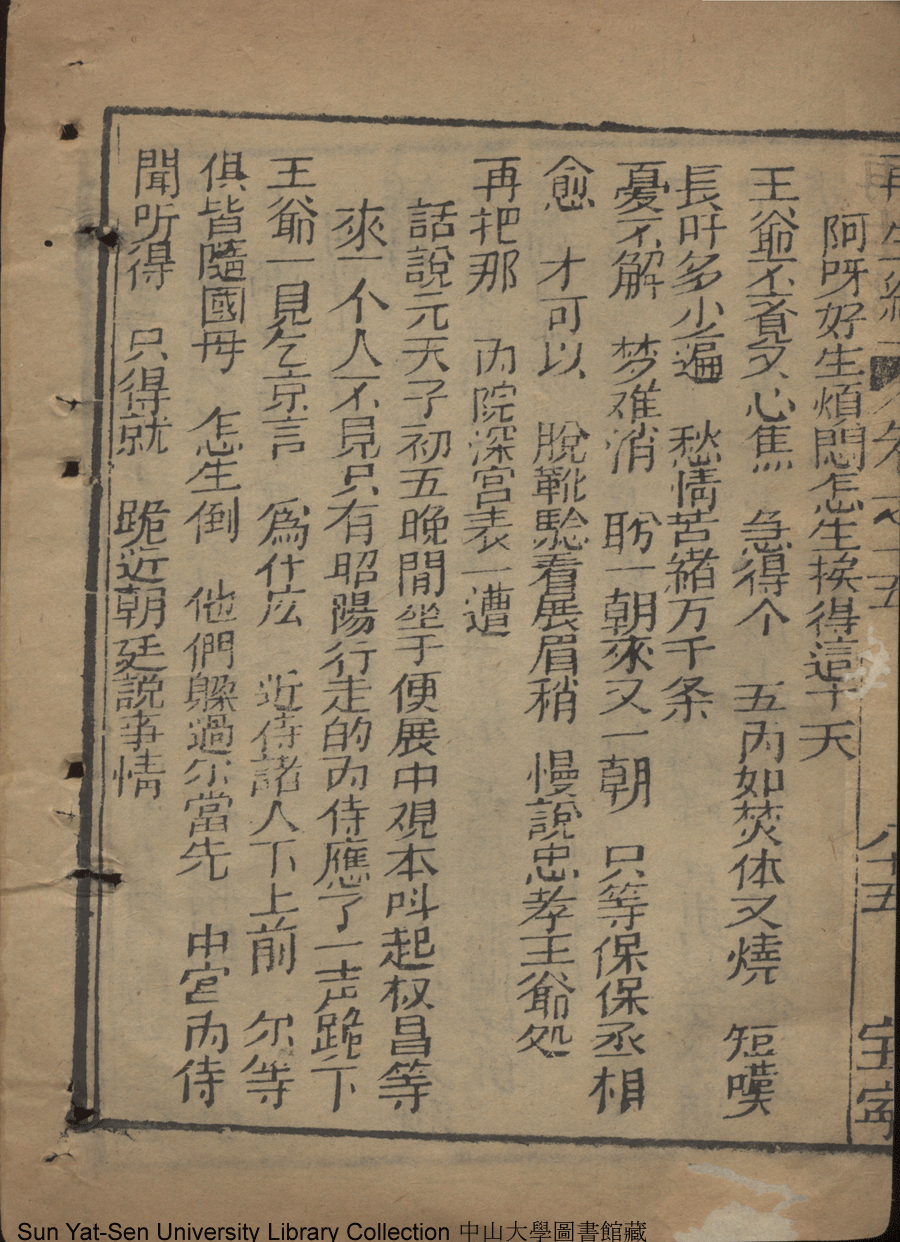 再生緣 卷之十五 八十五 宝寧
阿呀好生煩悶怎生挨得這十天
王爺不覚又心焦 急得个 五內如焚体又燒 短嘆
長吁多少遍 愁情苦緒万千条
憂不解 梦难消 盼一朝來又一朝 只等保保丞相
愈 才可以 脫靴驗看展眉稍 慢說忠孝王爺処
再把那 內院深宫表一遭
話說元天子初五晚閒坐于便展中覌本呌起权昌等
來一个人不見只有昭陽行走的內侍應了一声跪下
王爺一見乞京言 爲什庅 近侍諸人不上前 尔等
俱皆隨國母 怎生倒 他們躱過尔當先 中宮內侍
聞听得 只得就 跪近朝廷說事情
Sun Yat-Sen University Library Collection 中山大學圖書館藏